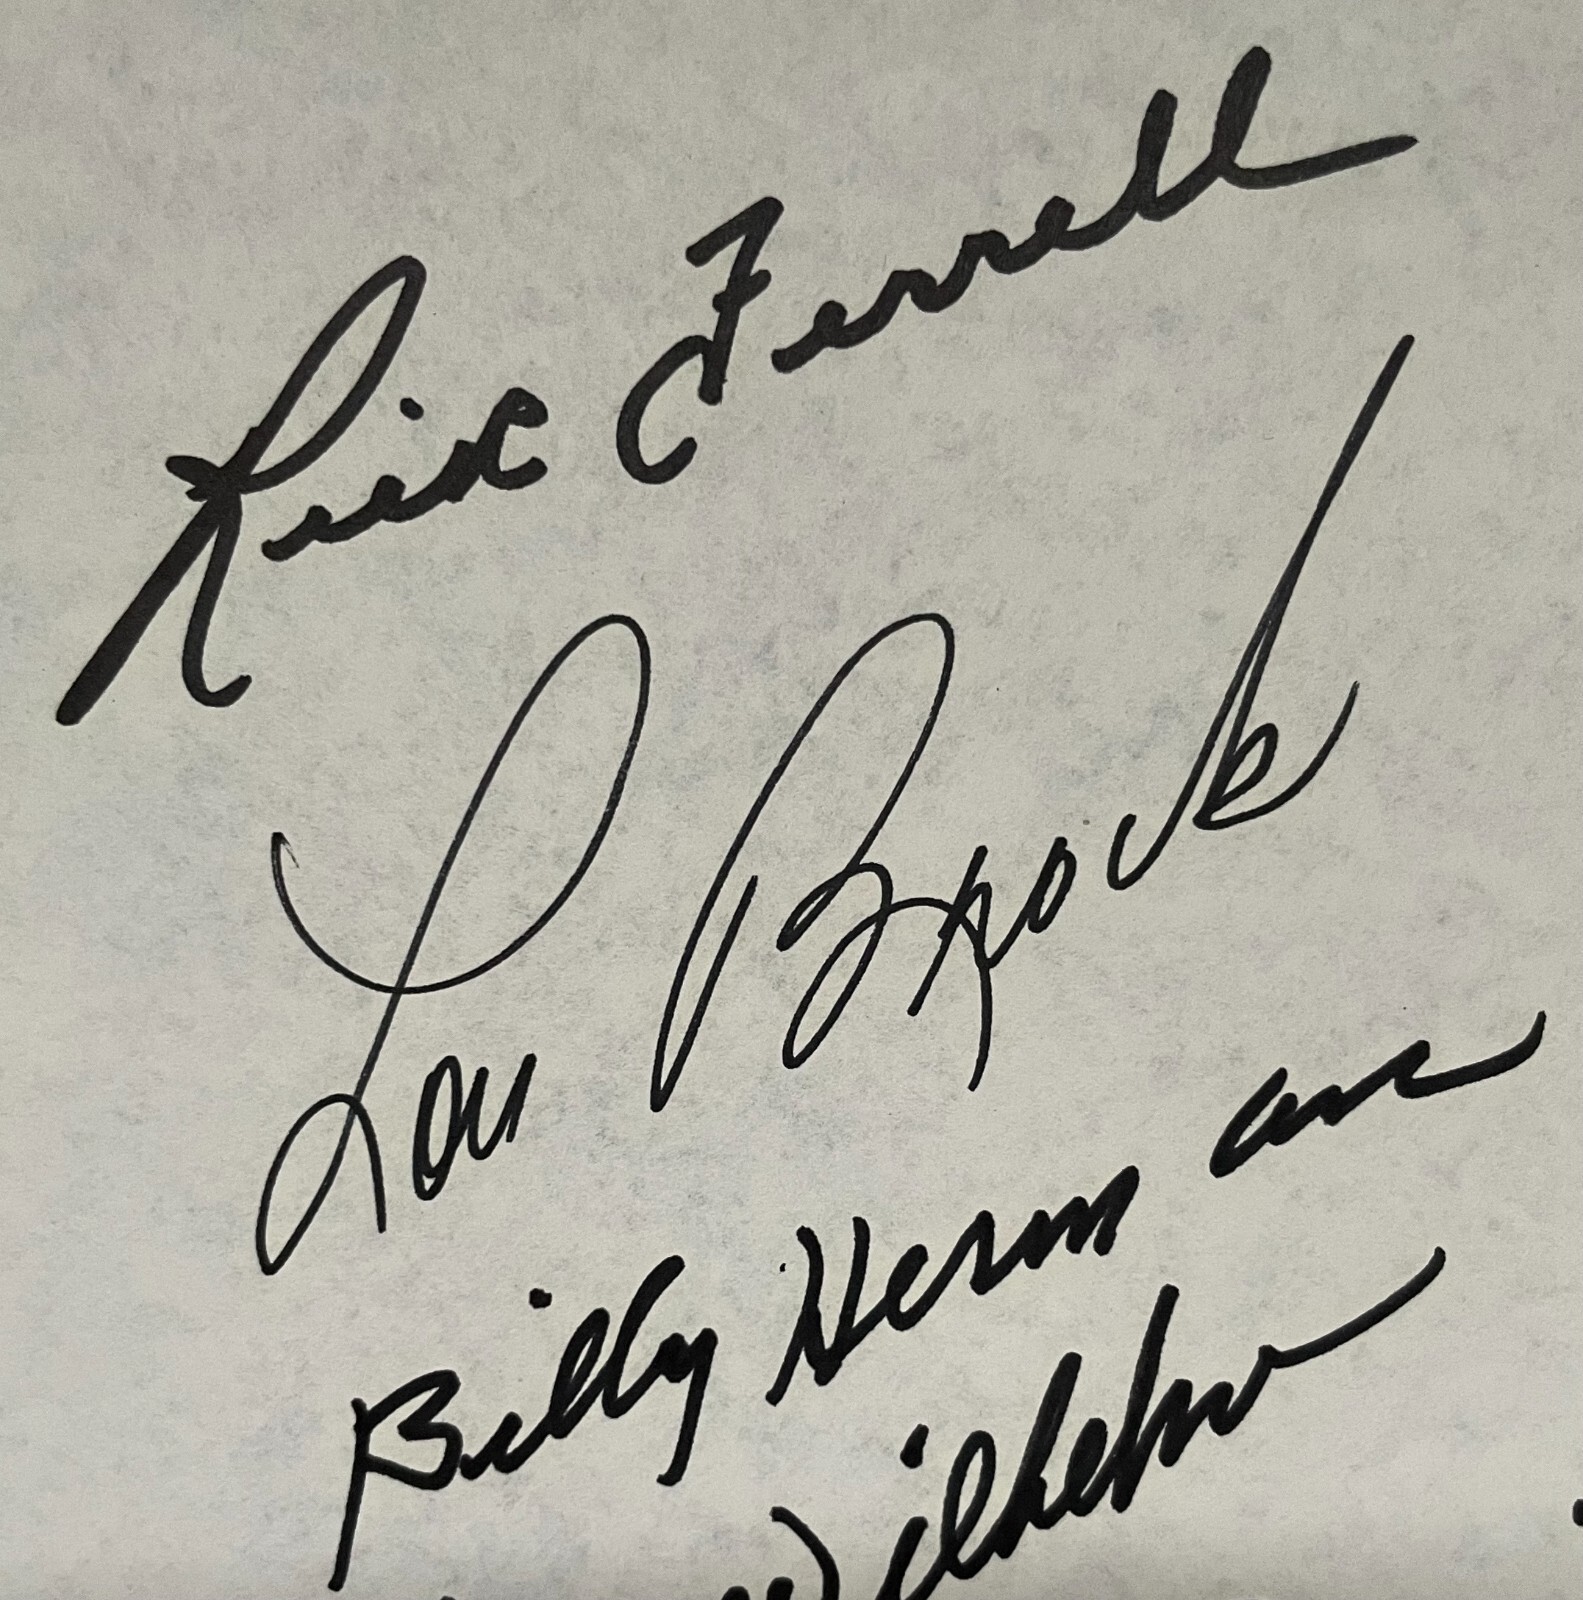 Rick Ferrell
Lou Brock
Billy Herman
Wilhelm